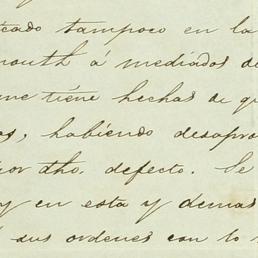 icado tampoco en la
mouth á mediados de
me tiene hechas de q
os, habiendo desapro
por dho. defecto. Se
y en esta y demas
sus ordenes con lo